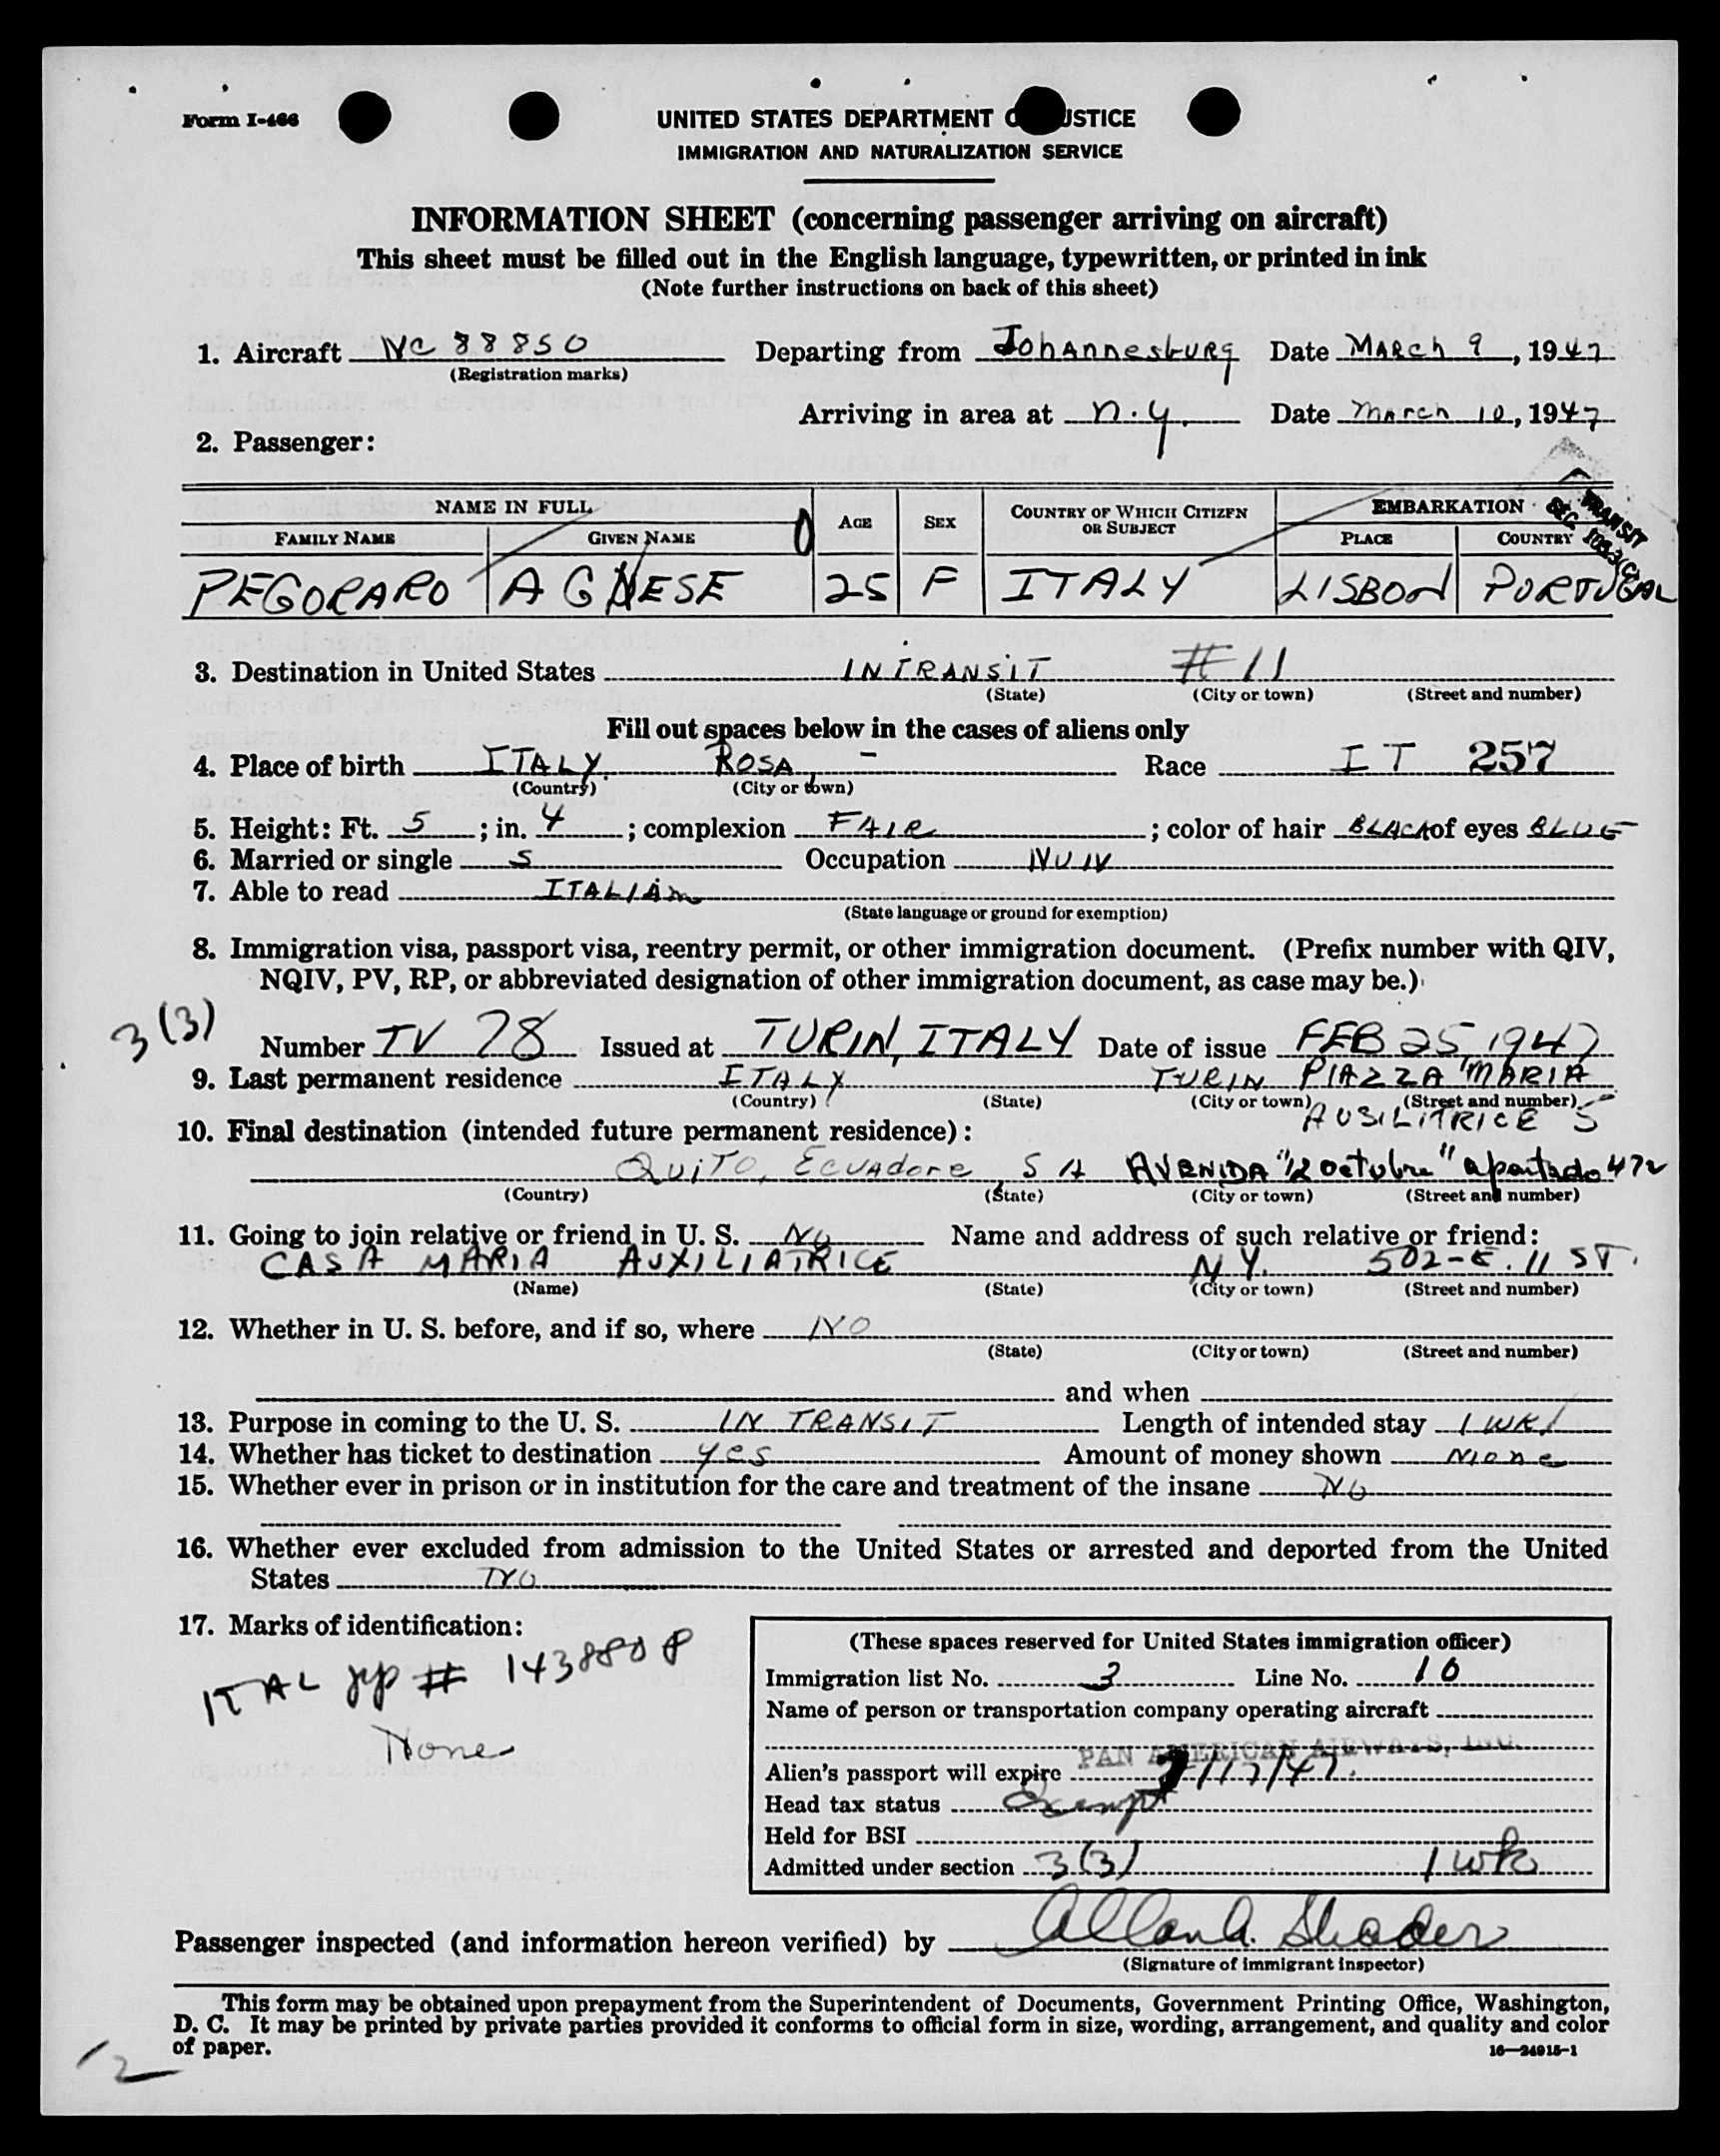 Form I-466
UNITED STATES DEPARTMENT O JUSTICE
IMMIGRATION AND NATURALIZATION SERVICE
INFORMATION SHEET (concerning passenger arriving on aircraft)
This sheet must be filled out in the English language, typewritten, or printed in ink
(Note further instructions on back of this sheet)
1. Aircraft NC 88850 Departing from Johannesburg Date March 9, 1947
(Registration marks)
Arriving in area at N.Y. Date March 10, 1947
2. Passenger:
NAME IN FULL AGE SEX COUNTRY OF WHICH CITIZEN OR SUBJECT EMBARKATION
FAMILY NAME GIVEN NAME PLACE COUNTRY
TRANSIT
PEGORARO AGNESE 25 F ITALY LISBON PORTUGAL
3. Destination in United States INTRANSIT #11
(State) (City or town) (Street and number)
Fill out spaces below in the cases of aliens only
4. Place of birth ITALY. ROSA, - Race IT 257
(Country) (City or town)
5. Height: Ft. 5 ; in. 4 ; complexion FAIR ; color of hair BLACK of eyes BLUE
6. Married or single S Occupation NUN
7. Able to read ITALIAN
(State language or ground for exemption)
8. Immigration visa, passport visa, reentry permit, or other immigration document. (Prefix number with QIV,
NQIV, PV, RP, or abbreviated designation of other immigration document, as case may be.)
3(3)
Number TV 78 Issued at TURIN, ITALY Date of issue FEB 25, 1947
9. Last permanent residence ITALY TURIN PIAZZA "MARIA
(Country) (State) (City or town) (Street and number)
AUSILITRICE 5"
10. Final destination (intended future permanent residence):
QUITO, Ecuadore, S A AVENIDA "12 octubre" apartado 472
(Country) (State) (City or town) (Street and number)
11. Going to join relative or friend in U. S. No Name and address of such relative or friend:
CASA MARIA AUXILIATRICE N.Y. 502-E. 11 ST.
(Name) (State) (City or town) (Street and number)
12. Whether in U. S. before, and if so, where NO
(State) (City or town) (Street and number)
and when
13. Purpose in coming to the U. S. IN TRANSIT Length of intended stay 1 WK
14. Whether has ticket to destination yes Amount of money shown None
15. Whether ever in prison or in institution for the care and treatment of the insane No
16. Whether ever excluded from admission to the United States or arrested and deported from the United
States NO
17. Marks of identification:
ITAL pp # 143880 P
None
(These spaces reserved for United States immigration officer)
Immigration list No. 3 Line No. 10
Name of person or transportation company operating aircraft
PAN AMERICAN AIRWAYS, INC.
Alien's passport will expire /17/47.
Head tax status Exempt
Held for BSI
Admitted under section 3(3) 1 wk
Passenger inspected (and information hereon verified) by Allan A. Shader
(Signature of immigrant inspector)
This form may be obtained upon prepayment from the Superintendent of Documents, Government Printing Office, Washington,
D. C. It may be printed by private parties provided it conforms to official form in size, wording, arrangement, and quality and color
of paper.
16—24915-1